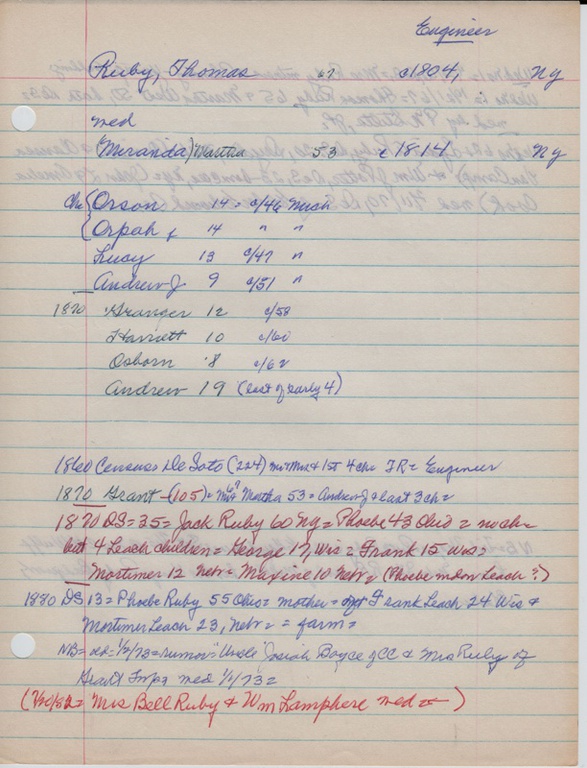 Engineer
Ruby, Thomas 67 c1804, Ny
med
(Miranda) Martha 53 c1814 Ny
Chi { Orson 14 = c/46 Mich
Orpah f 14 " "
Lucy 13 c/47 "
Andrew J 9 c/51 "
1870 Granger 12 c/58
Harriett 10 c/60
Osborn 8 c/62
Andrew 19 (last of early 4)
1860 Census De Soto (224) = Mr Mrs & 1st 4 chi TR = Engineer
1870 Grant (105) = Martha 53 = Andrew J & last 3 ch =
1870 DS = 35 = Jack Ruby 60 Ny = Phoebe 43 Ohio =
but 4 Leach children = George 17, Wis = Frank 15 Wis =
Mortimer 12 Nebr = Maxine 10 Nebr = (Phoebe Leach ?)
1880 DS 13 = Phoebe Ruby 55 Ohio = mother = of Frank Leach 24 Wis &
Mortimer Leach 23, Nebr = = farm =
NB = 1/2/73 = rumor = "Uncle" Josiah Boyce of CC & Mrs Ruby of
Grant Twp med 1/1/73 =
= Mrs Bell Ruby & Wm Lamphere med = )